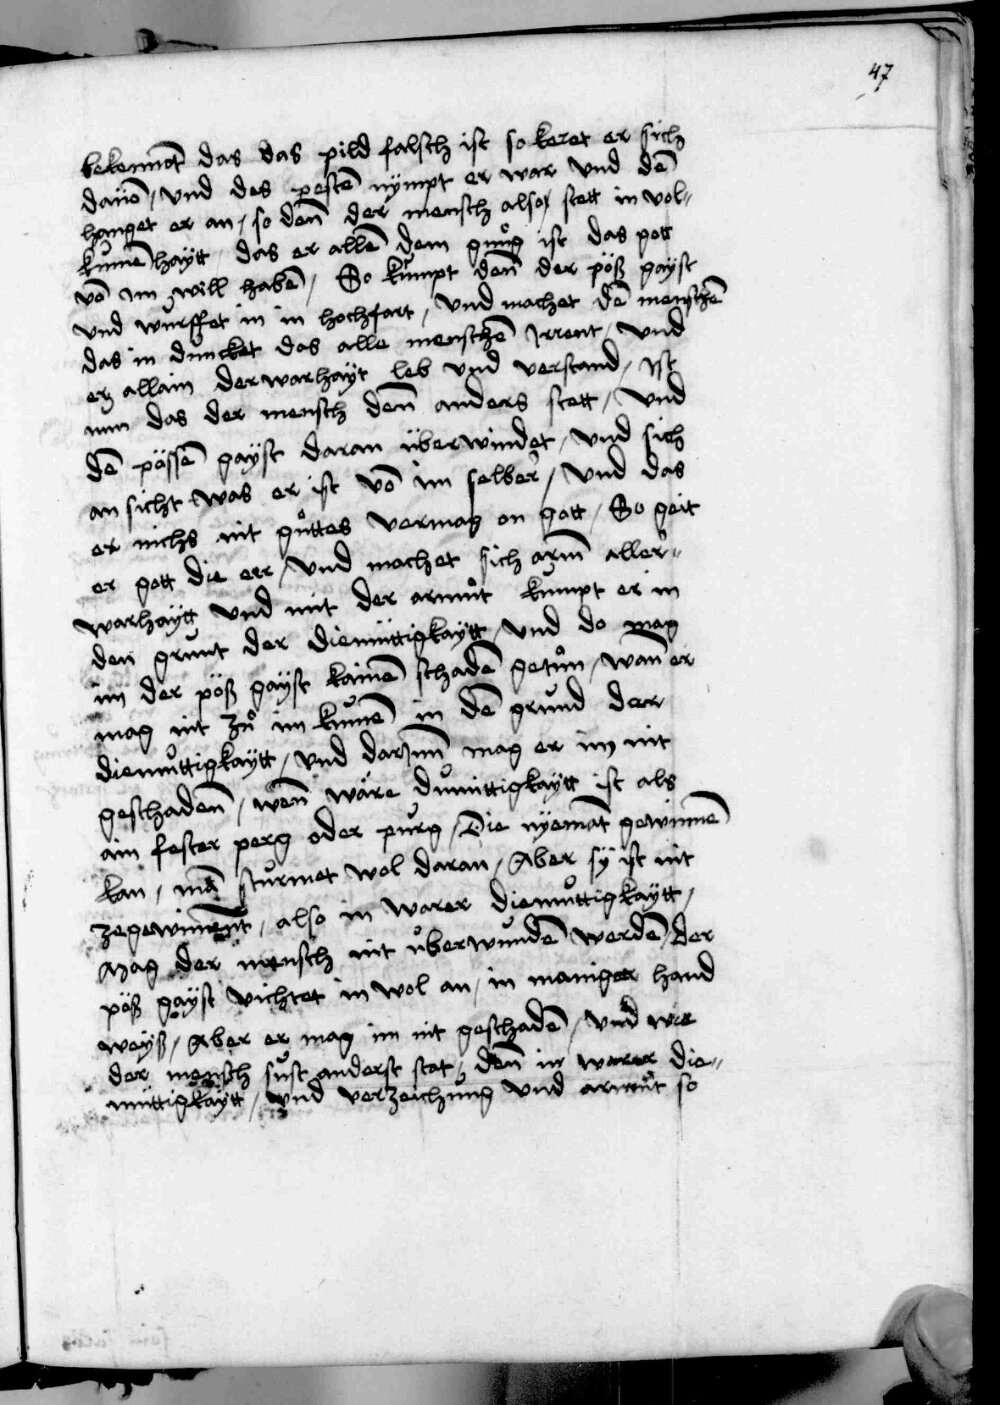 47
bekennot das das pild falsch ist so keret er sich
dauō / vnd des pestē nympt er war vnd dē
hanget er an / so deñ der mensch also stett in vol-
kumēhaÿtt / das er allē dem gnůg ist das gott
vō im will habē / So kumpt deñ der pöß gaÿst
vnd wurffet in in hochfart / vnd machet dē menschē
das in duncket das alle menschē Irrent / vnd
er allain der warhaÿt leb vnd verstand / Ist
nun das der mensch deñ anders stett / vnd
dē pössē gaÿst daran überwindet / vnd sich
an sicht was er ist vō im selber / vnd das
er nichs nit gůttes vermag on gott / So geit
er gott die err / vnd machet sich arm aller-
warhaÿtt vnd mit der armůt kumpt er in
den grunt der diemüttigkaÿtt / vnd do mag
im der pöß gaÿst kainē schadē getůn / wañ er
mag nit zů im kumē in dē grund der
diemůttigkaÿtt / vnd darum̄ mag er im nit
geschadeñ / weñ wäre dumittigkaÿtt ist als
ain fester perg oder purg / Die nÿemāt gewinnē
kan / mā sturmet wol daran / Aber sÿ ist nit
zegewinnent / also in warer diemůttigkaÿtt /
Mag der mensch nit ůberwundē werdē / der
pöß gaÿst vichtet in wol an / in maniger hand
weÿß / Aber er mag im nit geschadē / vnd wie
der mensch sust anderst stat / deñ in warer die-
müttigkaÿtt / vnd verzeichung vnd armůt so